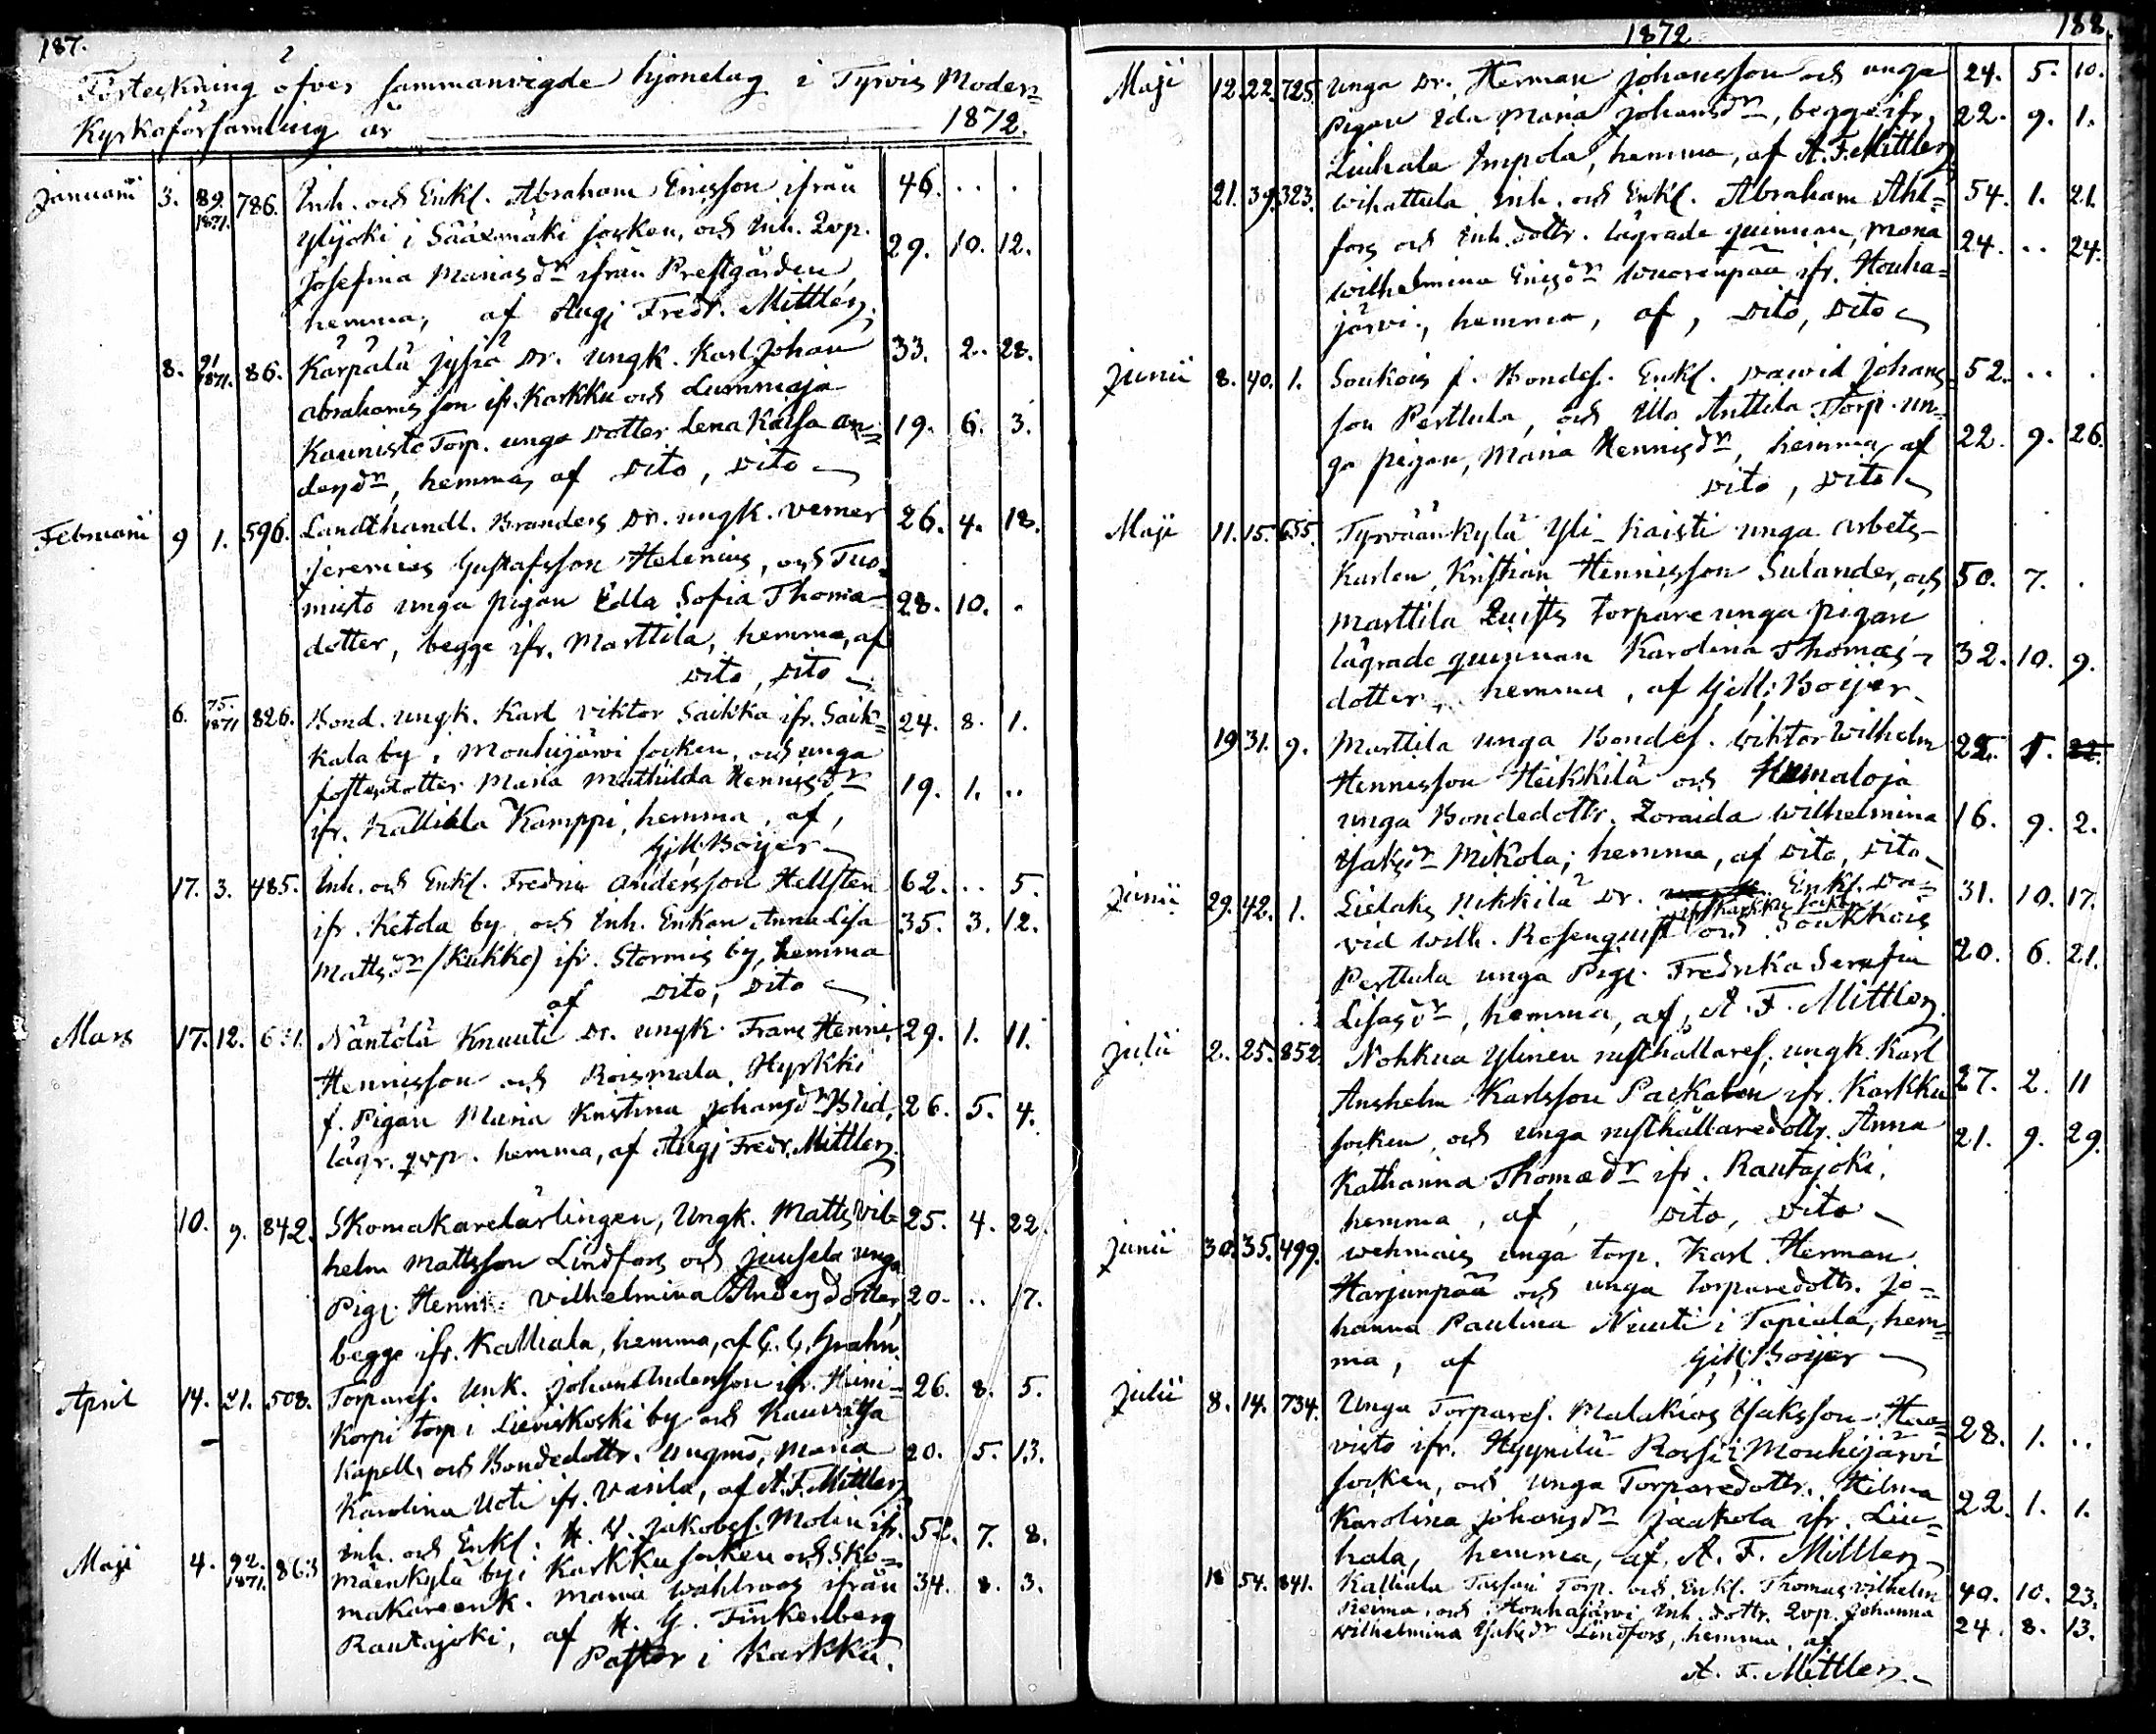 187.
Förteckning öfver sammanvigde hjonelag i Tyrvis Moder=
Kyrkoförsamling år 1872.
Januarii 3. 89. 1871. 786. Inh. och Enkl. Abraham Ericsson ifrån 46. .. .
Ylijoki i Sääxmäki socken, och Inh. Qvp.
Josefina Mariasdr ifrån Prestgården, 29. 10. 12.
hemma, af Aug: Fredr. Mittler.
8. 91 1871. 86. Kärpälä Jyßiä Dr. Ungk. Karl Johan 33. 2. 28.
Abrahamsson ifr. Karkku och Lummaja
Kaunisto Torp. unga Dotter Lena Kaisa An= 19. 6. 3.
dersdr, hemma, af Dito, Dito
Februarii 9 1. 596. Landthandl. Branders Dr. ungk. Verner 26. 4. 18.
Jeremias Gustafsson Helenius, och Tuo=
misto unga pigan Edla Sofia Thoma 28. 10. .
dotter, begge ifr. Marttila, hemma, af
Dito, Dito
6. 75. 1871 826. Bond. ungk. Karl Viktor Saikka ifr. Saik= 24. 8. 1.
kala by i Mouhijärvi socken, och unga
fosterdotter Maria Mathilda Hennisdr 19. 1. ..
ifr. Kalliala Kamppi, hemma, af,
G:M: Boijer
17. 3. 485. Inh. och Enkl. Fredric Andersson Hellsten 62. .. 5.
ifr. Ketola by, och Inh. Enkan Anna Lisa 35. 3. 12.
Mattsdr (Kukko) ifr. Stormis by, hemma
af Dito, Dito
Mars 17. 12. 631. Näntölä Knuuti Dr. ungk. Frans Henric 29. 1. 11.
Hennisson och Roismala, Hyrkki
f. Pigan Maria Kristina Johansdr Blid, 26. 5. 4.
lägr. qvp. hemma, af Aug: Fredr. Mittler.
10. 9. 842. Skomakarelärlingen, Ungk. Matts Vil= 25. 4. 22.
helm Mattsson Lindfors och Juusela unga
Pig. Henr. Vilhelmina Andersdotter, 20. .. 17.
begge ifr. Kalliala, hemma, af G. G. Grahn.
April 14. 21. 508. Torpares. Unk. Johan Andersson ifr. Hiini= 26. 8. 5.
Korpi torp i Lieviskoski by och Kauvatsa
Kapell, och Bondedottr. Ungmö, Maria 20. 5. 13.
Karolina Uoti ifr. Vänilä, af A. F. Mittler
Maji 4. 92. 1871. 863 Inh. och Enkl: H. V. Jakobss. Molin ifr. 52. 7. 8.
mäenkylä by i Karkku socken och Sko=
makareenk. Maria Wahlroos ifrån 34. 8. 3.
Rautajoki, af H. G. Finkenberg
Pastor i Karkku.
1872 188.
Maji 12. 22. 725. unga Dr. Herman Johansson och unga 24. 5. 10.
Pigan Eda Maria Johansdr, begge ifr. 22. 9. 1.
Liuhala Impola, hemma, af A. F. Mittler
21. 39. 323. Wihattula Inh. och Enkl. Abraham Ahl= 54. 1. 21.
fors och Inh. dottr. lägrade quinnan, Maria 24. .. 24.
Wilhelmina Ericsdr Wuorenpää ifr. Houha=
järvi, hemma, af, Dito, Dito
Junii 8. 40. 1. Soukois f. Bondes. Enkl. David Johans 52. .. .
son Perttula, och Ulla Anttila Torp. un=
ga pigan, Maria Hennisdr, hemma, af 22. 9. 26.
Dito, Dito
Maji 11. 15. 655. Tyrväänkylä Yli-Kaisti unga arbets-
karlen Kristian Hennisson Sulander, och 50. 7. .
Marttila Quists Torpare unga pigan
lägrade quinnan Karolina Thomas- 32. 10. 9.
dotter, hemma, af G:M: Boijer.
19 31. 9. Marttila unga Bondes. Wiktor Wilhelm 22. 5.
Hennisson Heikkilä och Humaloja
unga Bondedottr. Zoraida Wilhelmina 16. 9. 2.
Isaksdr Mikola, hemma, af Dito, Dito
Junii 29. 42. 1. Lielaks Nikkilä Dr. Enkl. Da= 31. 10. 17.
ifr. Karkku socken
vid Wilh. Rosenquist och Soukkois
Perttula unga Pig. Fredrika Serafia 20. 6. 21.
Lisasdr, hemma, af A. F. Mittler.
Julii 2. 25. 852. Nohkua Ylinen rusthållares. ungk. Karl
Anshelm Karlsson Paikalen ifr. Karkku 27. 2. 11
socken, och unga rusthållaredottr. Anna 21. 9. 29.
Katharina Thomasdr ifr. Rautajoki,
hemma, af, Dito, Dito
Junii 30. 35. 499. Wehmais unga torp. Karl Herman
Harjunpää och unga torparedottr. Jo=
hanna Paulina Nuuti i Tapiala, hem=
ma, af G:M: Boijer
Julii 8. 14. 734. Unga Torpares. Malakias Isaksson Haa=
visto ifr. Hyynilä Rossi i Mouhijärvi 28. 1. ..
socken, och Unga Torparedottr. Hilma
Karolina Johansdr Jaakola ifr. Liu= 22. 1. 1.
hala, hemma, af A. F. Mittler
18 54. 841. Kalliala Torp. och Enkl. Thomas Vilhelm 40. 10. 23.
Reima, och Houhajärvi Inh. dottr. Qvp. Johanna
Wilhelmina Isaksdr Lindfors, hemma, af 24. 8. 13.
A. F. Mittler